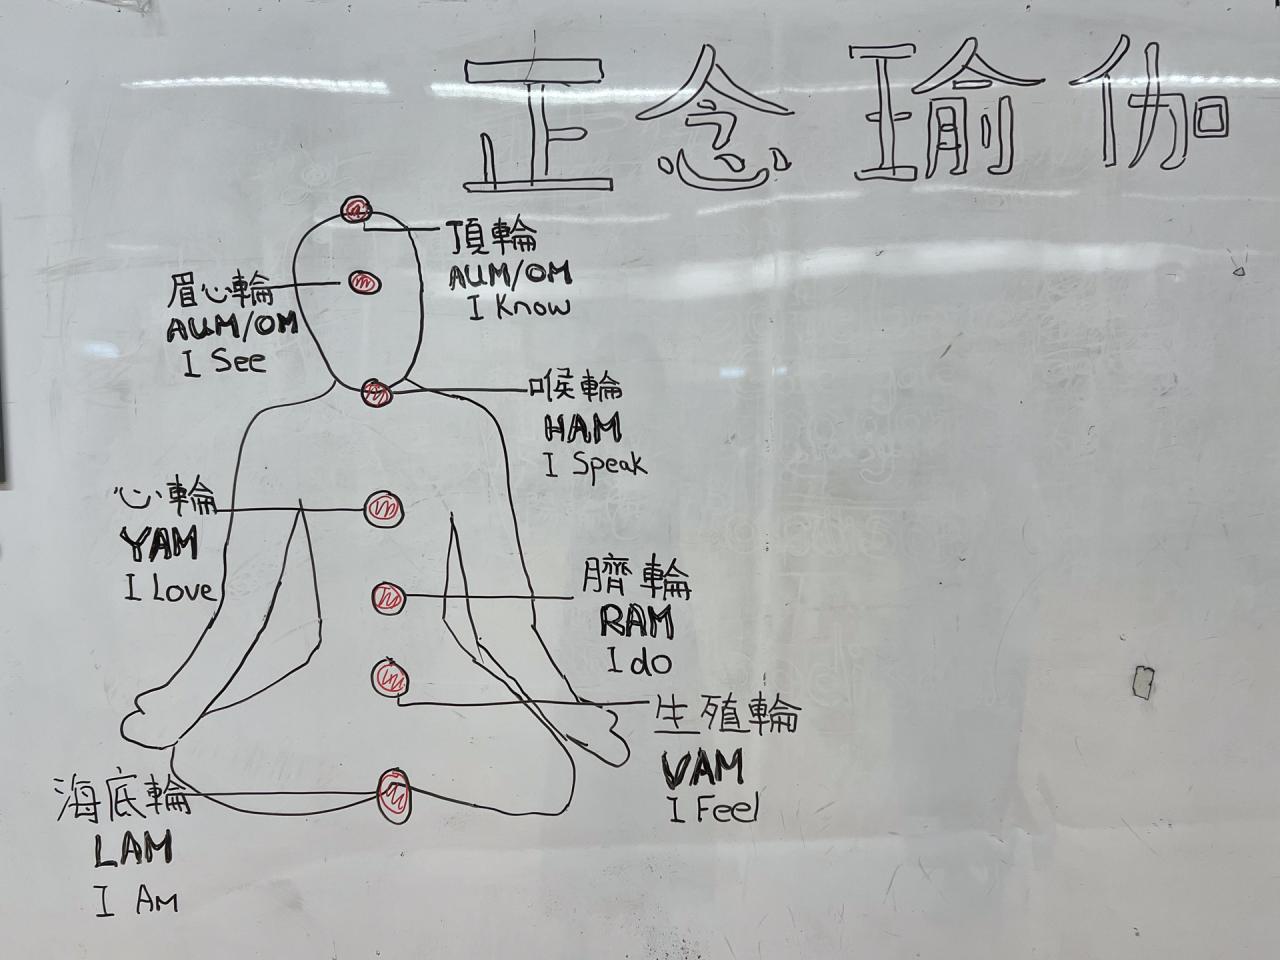 正念瑜伽
頂輪
AUM/OM
I Know
眉心輪
AUM/OM
I See
喉輪
HAM
I Speak
心輪
YAM
I Love
臍輪
RAM
I do
生殖輪
VAM
I Feel
海底輪
LAM
I AM